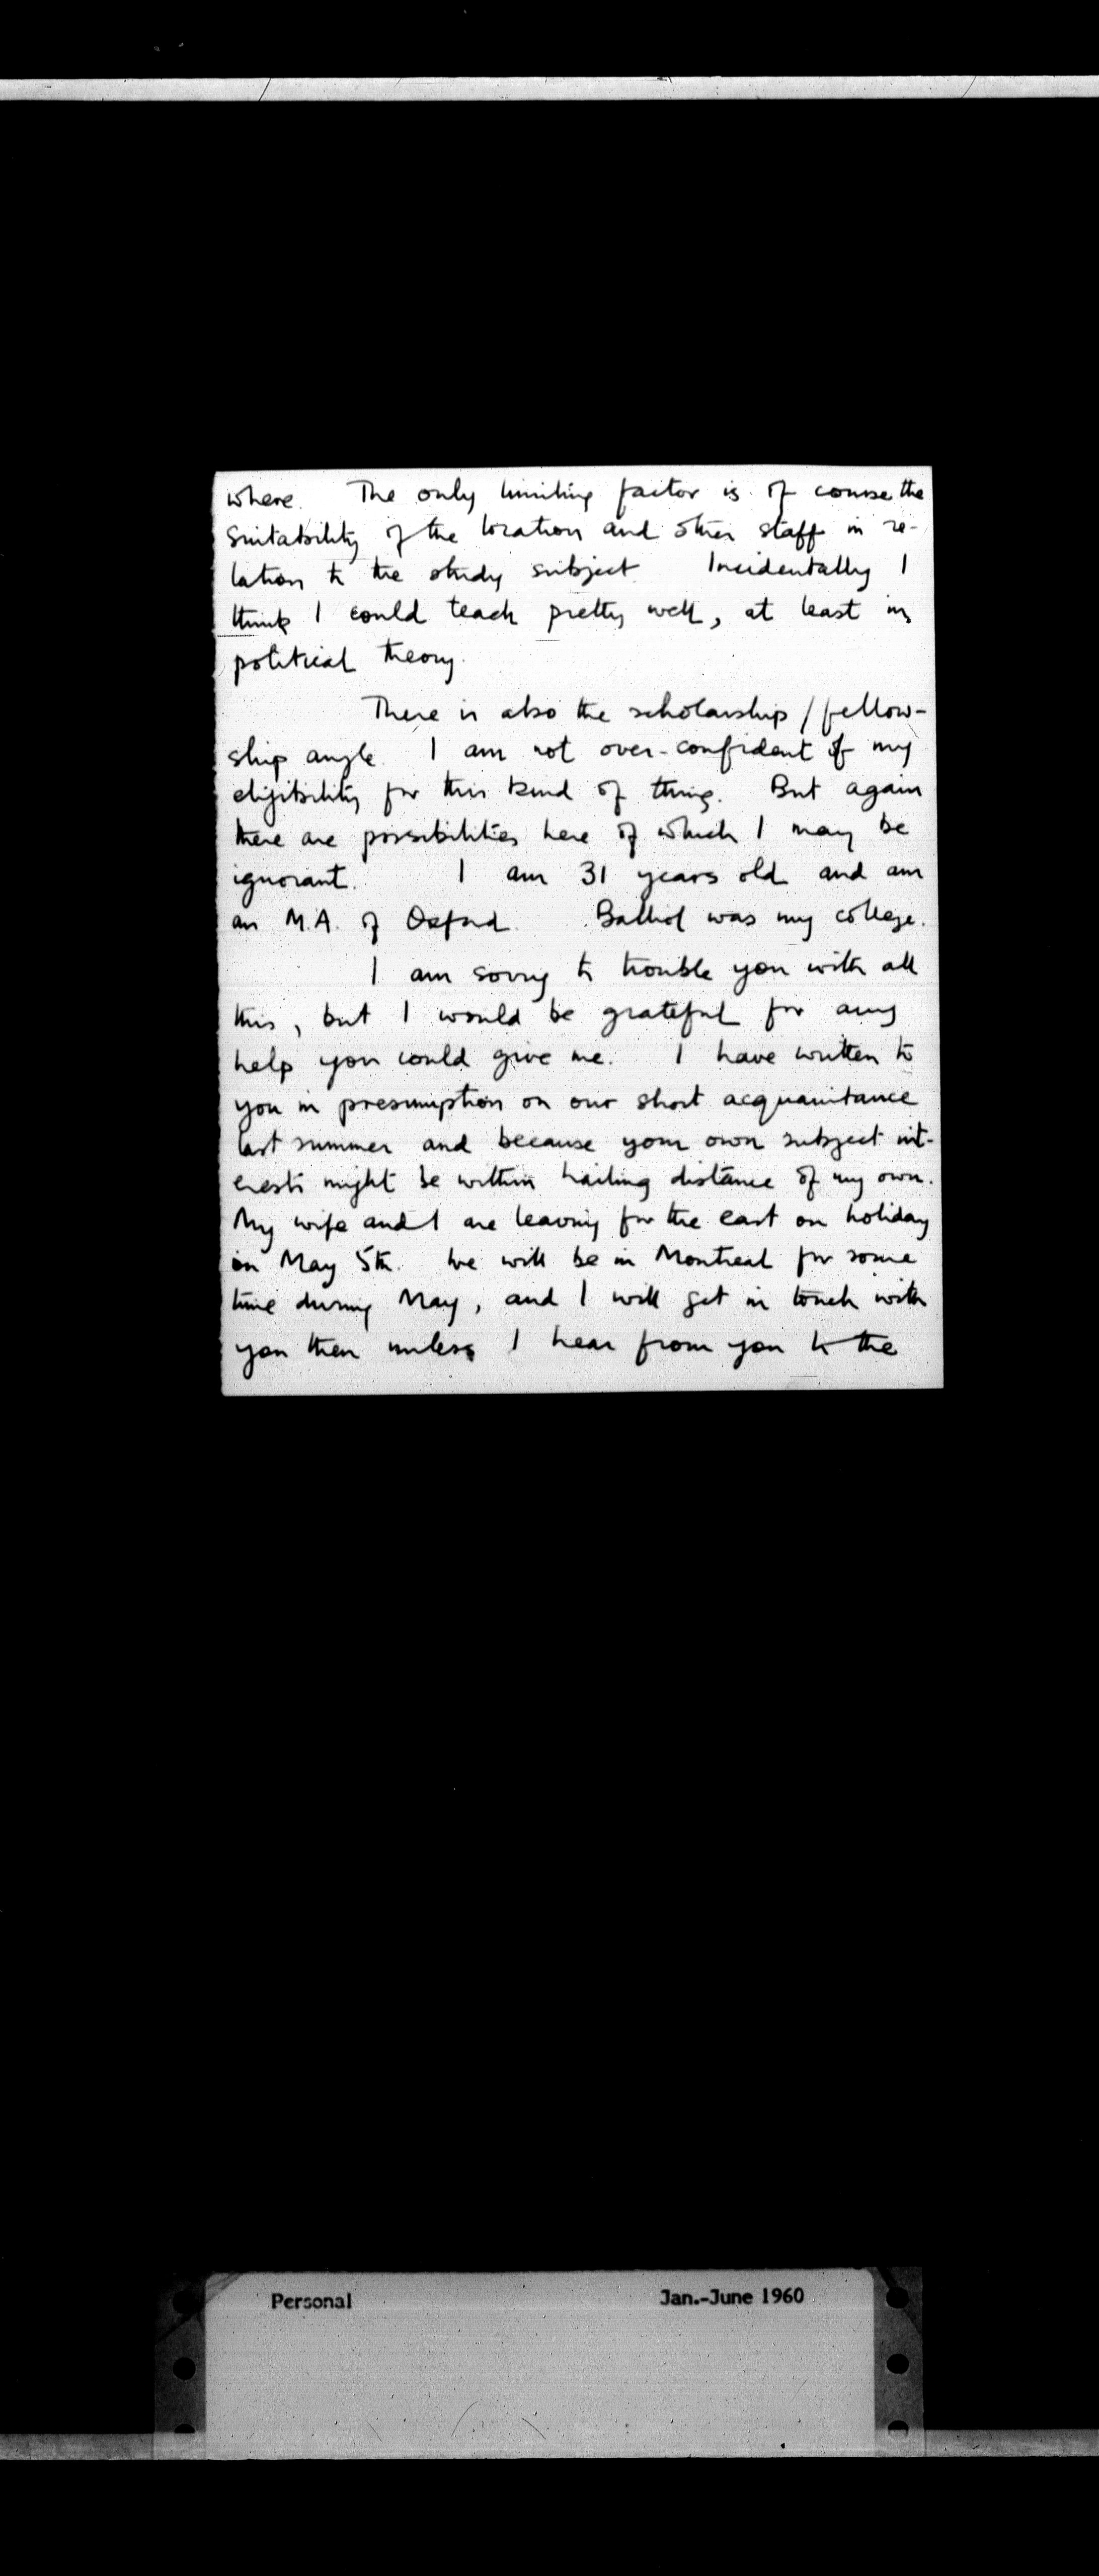 where. The only limiting factor is of course the
suitability of the location and other staff in re-
lation to the study subject. Incidentally I
think I could teach pretty well, at least in
political theory.
There is also the scholarship / fellow-
ship angle. I am not over-confident of my
eligibility for this kind of thing. But again
there are possibilities here of which I may be
ignorant. I am 31 years old and am
an M.A. of Oxford. Balliol was my college.
I am sorry to trouble you with all
this, but I would be grateful for any
help you could give me. I have written to
you in presumption on our short acquaintance
last summer and because your own subject int-
erests might be within hailing distance of my own.
My wife and I are leaving for the east on holiday
on May 5th. We will be in Montreal for some
time during May, and I will get in touch with
you then unless I hear from you to the
Personal Jan.-June 1960